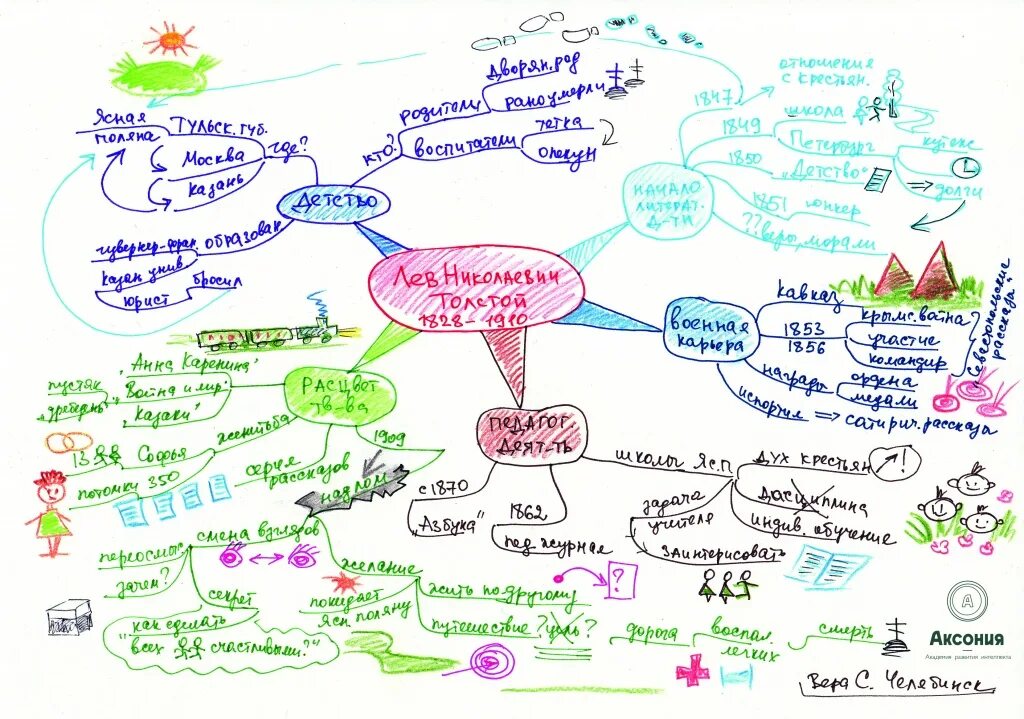 Лев Николаевич
Толстой
1828 - 1910
Детство
где?
Тульск. губ.
Ясная
поляна
Москва
Казань
кто?
родители
дворян. род
рано умерли
воспитатели
тетка
опекун
образован
гувернер-фран.
казан. унив.
бросил
юрист
Начало
литерат.
д-ти
1847
отношение
с крестьян.
школа
1849
Петербург
кутеж
долги
1850
„Детство"
1851
юнкер
?? веры, морали
военная
карьера
Кавказ
1853
1856
Крымс. война
участие
командир
„Севастопольские
рассказы"
награды
ордена
медали
испортил => сатирич. рассказы
Педагог
деят-ть
с 1870
„Азбука"
1862
пед. журнал
школы Яс.П
дух крестьян
!
дисциплина
индив. обучение
задача
учителя
заинтересовать
Расцвет
тв-ва
„Анна Каренина"
„Война и мир"
„Казаки"
пустяк
„дребедень"
женитьба
Софья
13
потомки 350
серия
рассказов
1909
надлом
смена взглядов
переосмыс.
зачем?
секрет
„как сделать
всех счастливыми?"
желание
жить по другому
?
покидает
Яс. поляну
путешествие ? цель ?
дорога
воспал.
легких
смерть
А
Аксония
Академия развития интеллекта
Вера С. Челябинск